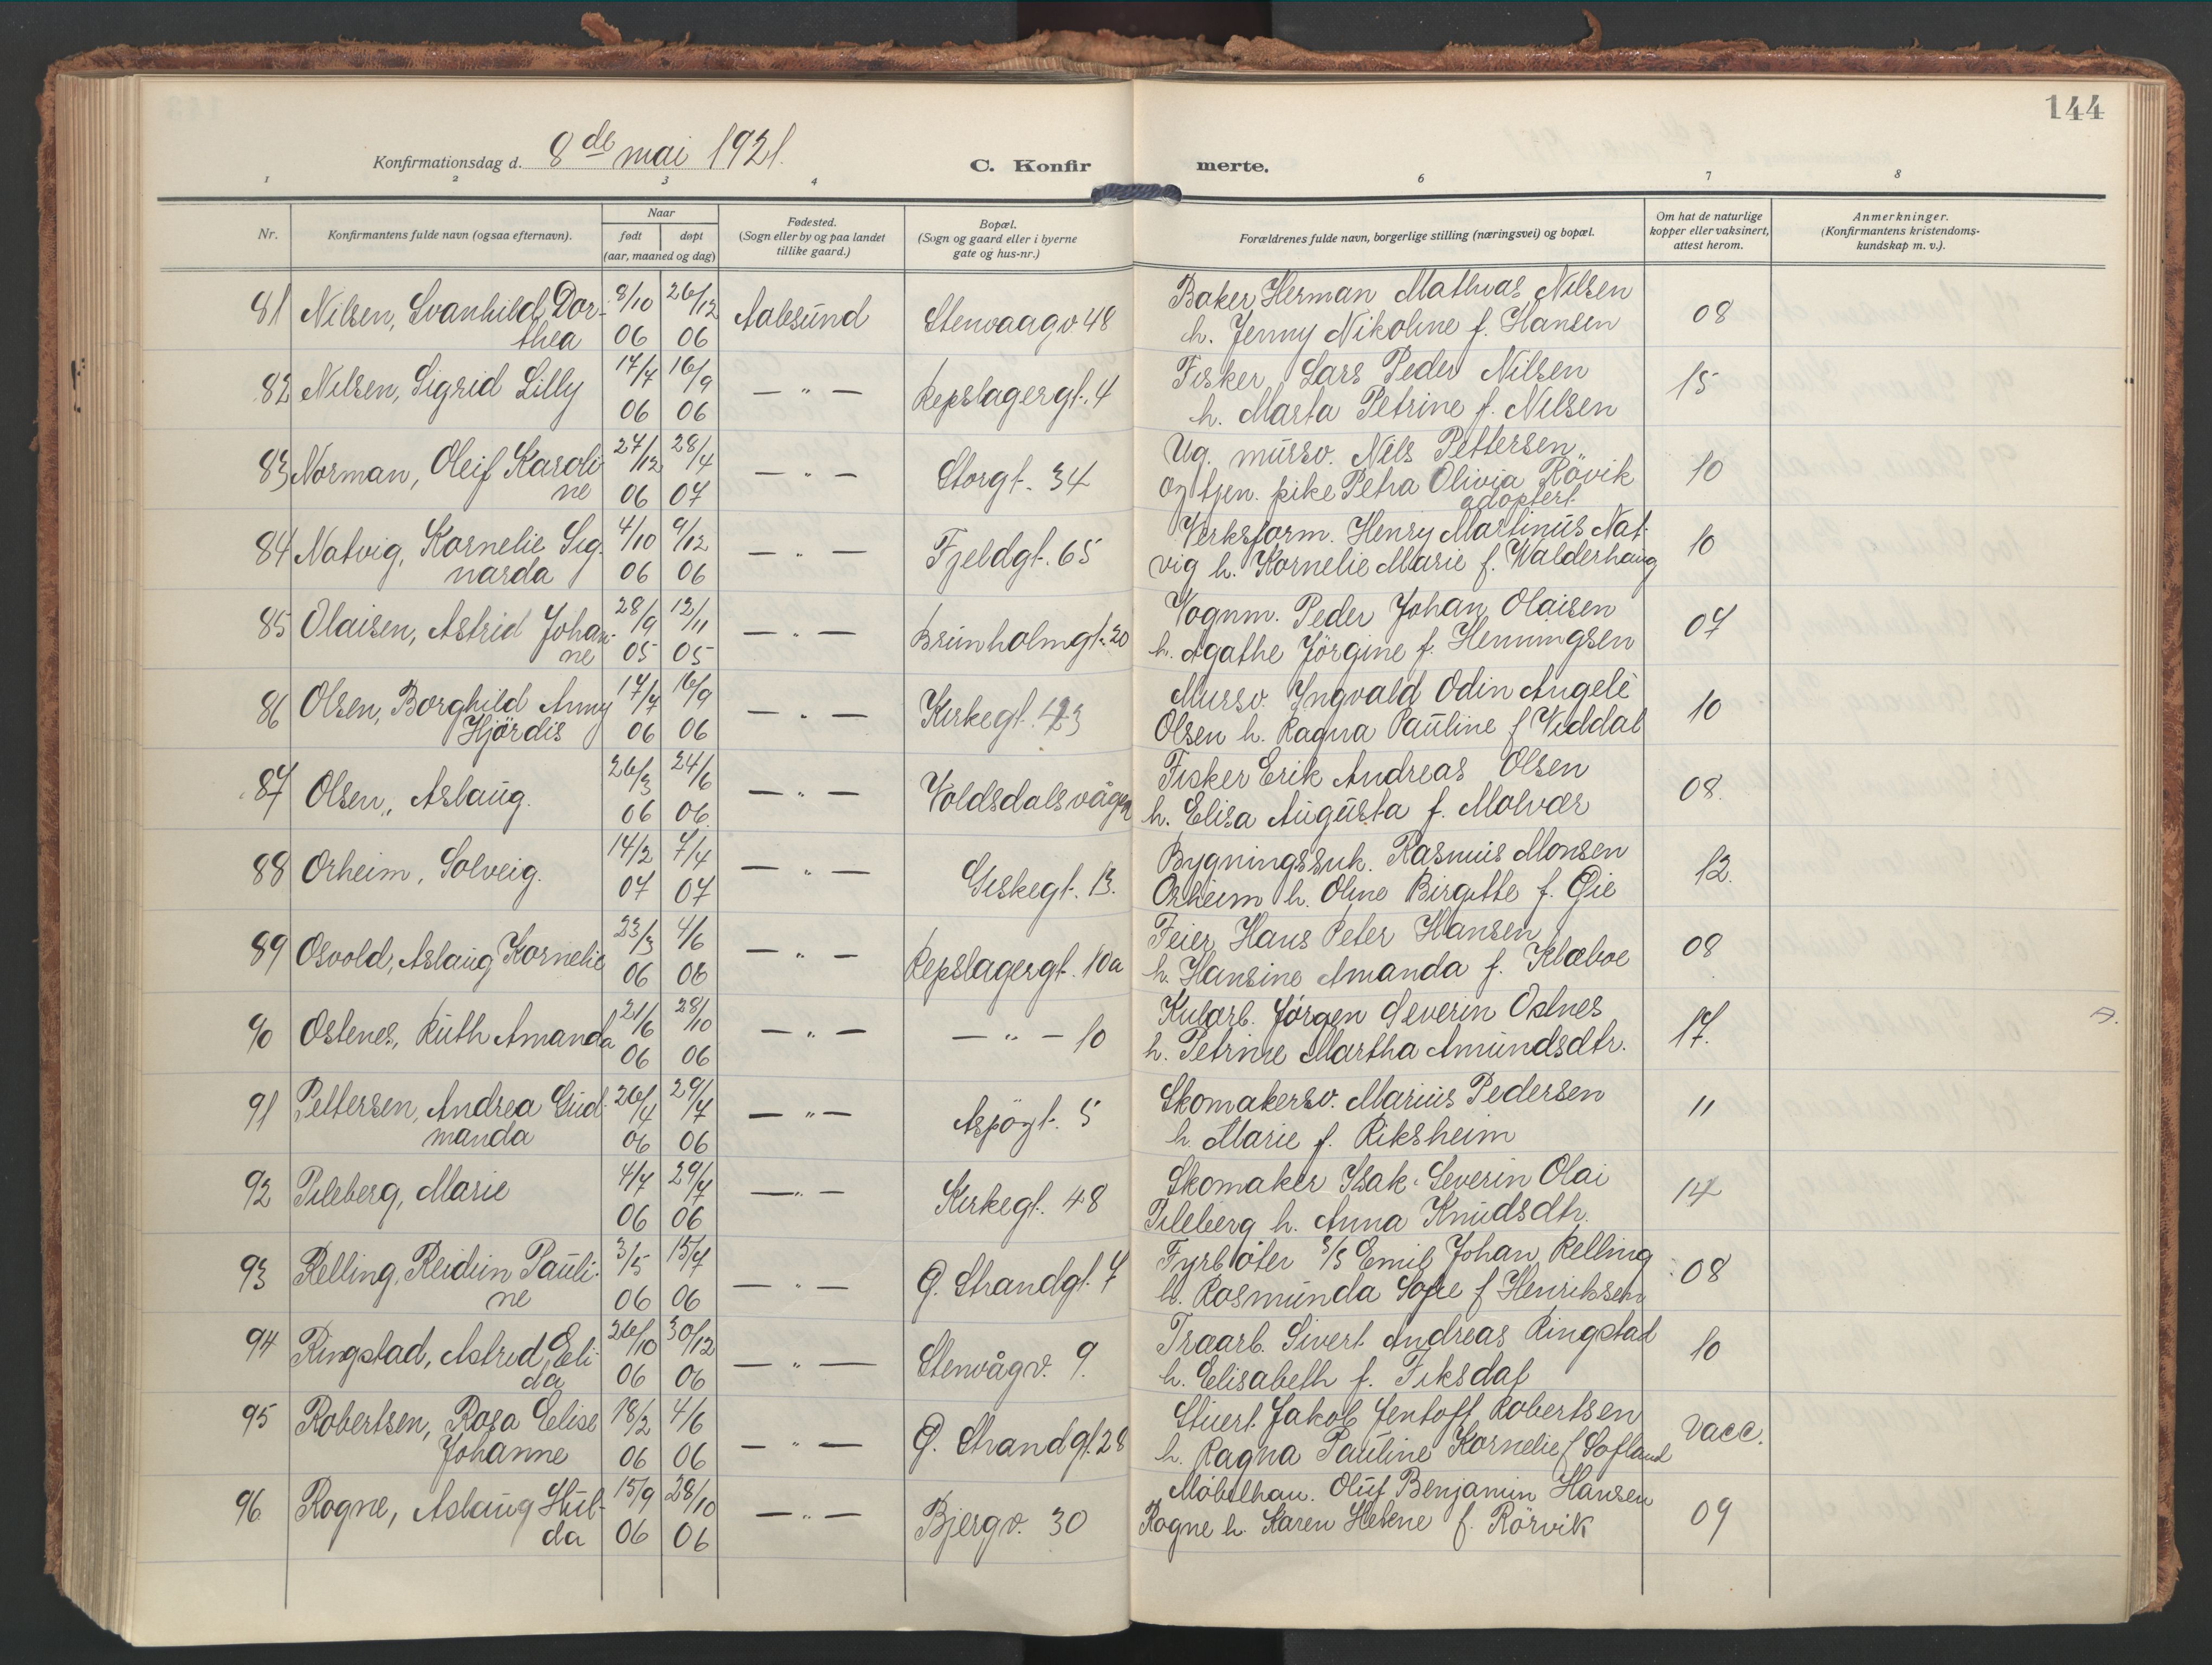 144
Konfirmationsdag d. 8de mai 1921.
C. Konfirmerte.
1 2 3 4 6 7 8
Nr.
Konfirmantens fulde navn (ogsaa efternavn).
Naar
født døpt
(aar, maaned og dag)
Fødested.
(Sogn eller by og paa landet
tillike gaard.)
Bopæl.
(Sogn og gaard eller i byerne
gate og hus-nr.)
Forældrenes fulde navn, borgerlige stilling (næringsvei) og bopæl.
Om hat de naturlige
kopper eller vaksinert,
attest herom.
Anmerkninger.
(Konfirmantens kristendoms-
kundskap m. v.).
81 Nilsen, Svanhild Dor- 8/10 26/12 Aalesund Stenvaagv 48 Baker Herman Mathias Nilsen 08
thea 06 06 h. Jenny Nikoline f. Hansen
82 Nilsen, Sigrid Lilly 17/7 16/9 — " — Repslagergt. 4 Fisker Lars Peder Nilsen 15
06 06 h. Marta Petrine f. Nilsen
83 Norman, Oleif Karoli 27/12 28/4 — " — Storgt. 34 Ug. mursv. Nils Pettersen 10
ne 06 07 og tjen. pike Petra Olivia Rövik
adoptert
84 Natvig, Kornelie Sig- 4/10 9/12 — " — Fjeldgt. 65 Verksform. Henry Martinus Nat- 10
narda 06 06 vig h. Kornelie Marie f. Walderhaug
85 Olaisen, Astrid Johan- 28/9 12/11 — " — Brunholmgt. 20 Vognm. Peder Johan Olaisen 07
ne 05 05 h. Agathe Jörgine f. Henningsen
86 Olsen, Borghild Anny 17/7 16/9 — " — Kirkegt. 23 Mursv. Yngvald Odin Angele 10
Hjördis 06 06 Olsen h. Ragna Pauline f Viddal
87 Olsen, Aslaug. 26/3 24/6 — " — Voldsdalsvågen Fisker Erik Andreas Olsen 08.
06 06. h. Elisa Augusta f. Molvær
88 Orheim, Solveig. 14/2 7/4 — " — Giskegt. 13. Bygningssnk. Rasmus Monsen 12.
07 07 Orheim h. Oline Birgitte f. Gie
89 Osvold, Aslaug Kornelie 23/3 4/6 — " — Repslagergt. 10a Feier Hans Peter Hansen 08
06 06 h. Hansine Amanda f. Klæboe
90 Ostenes, Ruth Amanda 21/6 28/10 — " — — " — 10 Kularb. Jørgen Severin Ostnes 17.
06 06 h. Petrine Martha Amundsdtr.
91 Pettersen, Andrea Gud- 26/4 29/7 — " — Aspögt. 5 Skomakersv. Marius Pedersen 11
manda 06 06 h. Marie f. Riksheim
92 Pileberg, Marie 4/7 29/7 — " — Kirkegt. 48 Skomaker Isak Severin Olai 14
06 06 Pileberg h. Anna Knudsdtr.
93 Relling, Reidun Pauli- 3/5 15/7 — " — G. Strandgt. 7 Fyrböter S/S Emil Johan Relling 08
ne 06 06 h. Rasmunda Sofie f Henriksen
94 Ringstad, Astrid Eli- 26/10 30/12 — " — Stenvågv. 9. Traarb. Sivert Andreas Ringstad 10
da 06 06 h. Elisabeth f. Fiksdal
95 Robertsen, Rosa Elise 18/2 4/6 — " — G. Strandgt. 28 Stuert Jakob Jentoft Robertsen vacc.
Johanne 06 06 h. Ragna Pauline Kornelie f Sofland
96 Rogne, Aslaug Hul- 15/9 28/10 — " — Bjergv. 30 Möbelhan. Oluf Benjamin Hansen 09
da 06 06 Rogne h. Karen Helene f. Rörvik